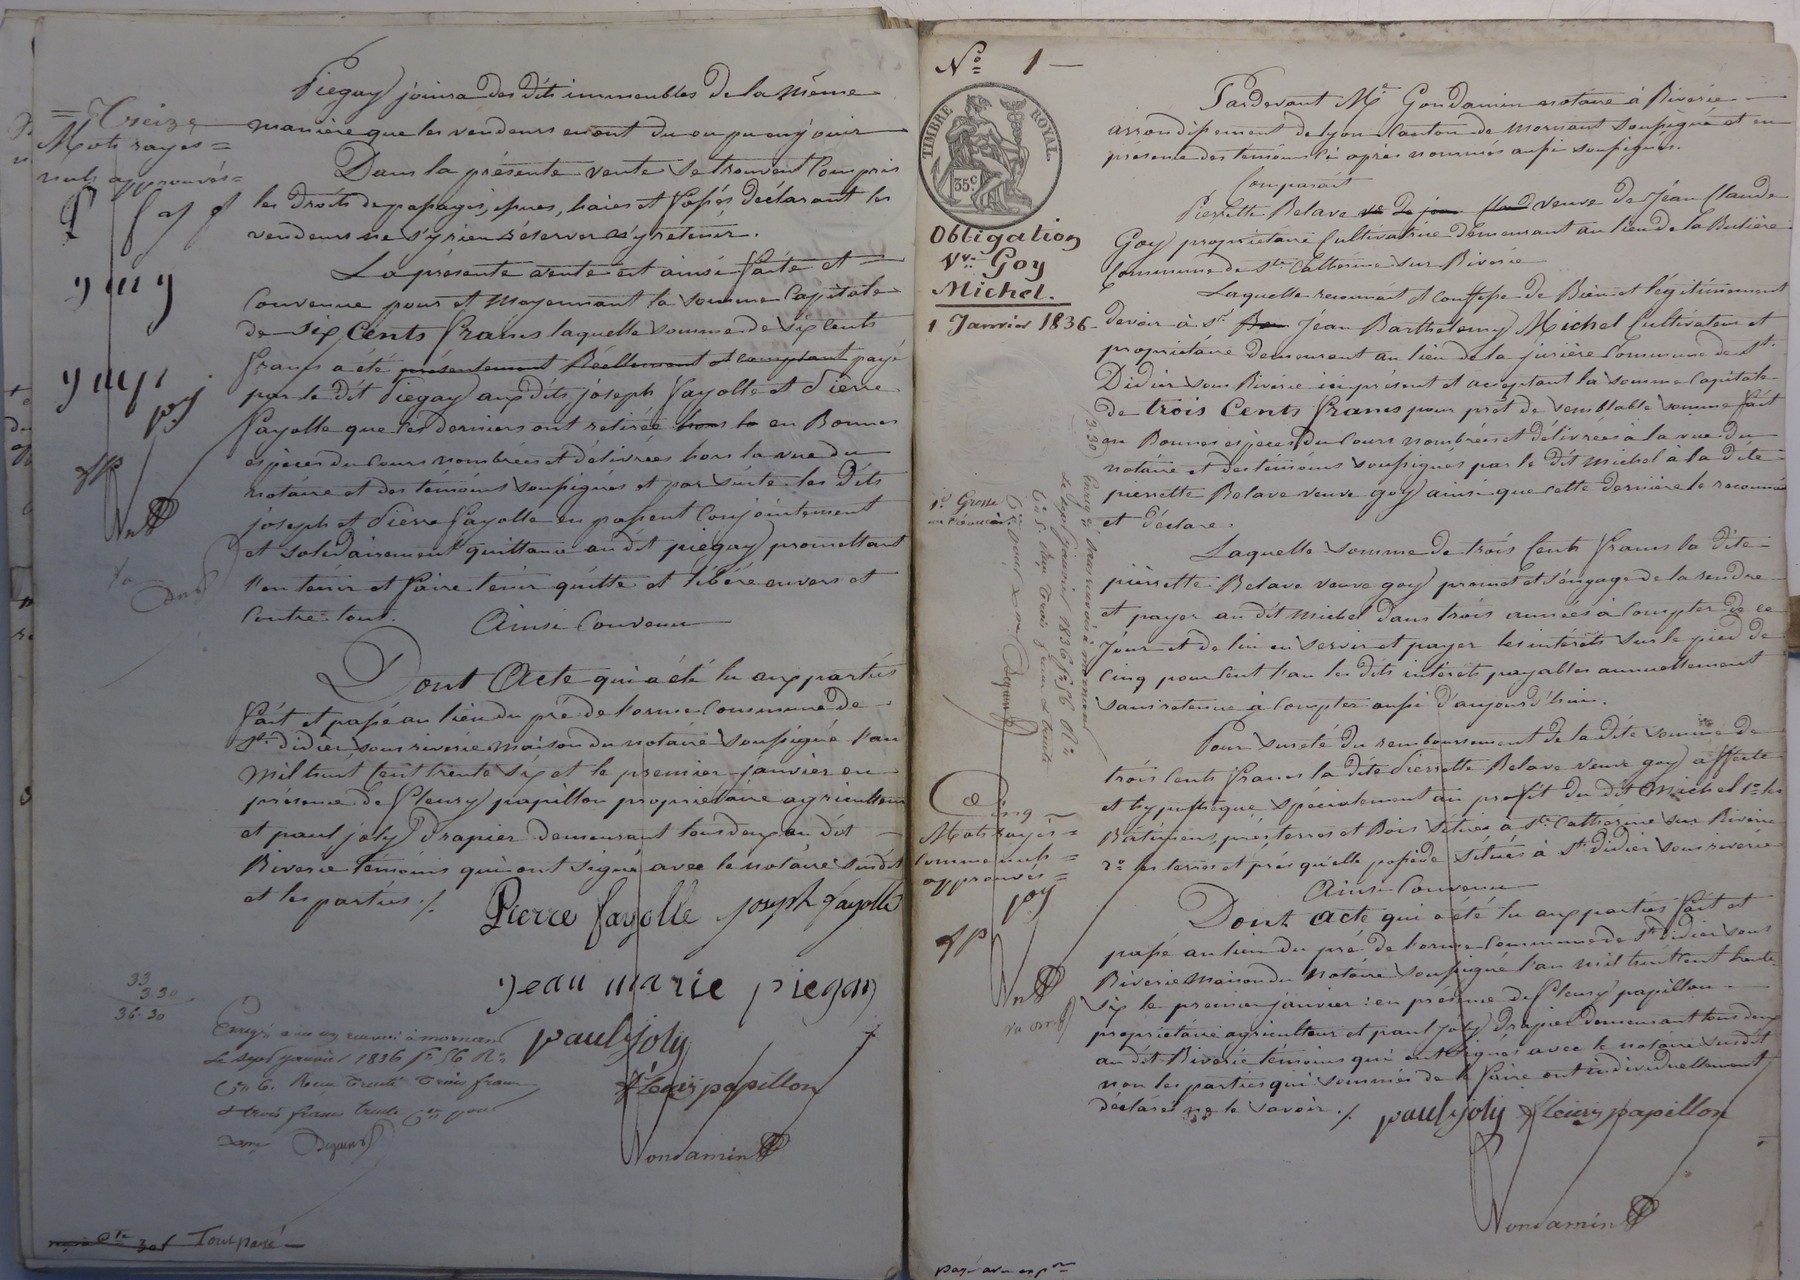 Piegay jouira des dits immeubles de la même
manière que les vendeurs en ont du ou pu en jouir
Dans la présente vente se trouvent compris
les droits de passages, haies et fossés déclarant les
vendeurs ne s'y rien réserver n'y retenir.
La présente vente est ainsi faite et
convenue pour et moyennant la somme capitale
de six cents francs laquelle somme de six cents
francs a été présentement réellement et comptant payé
par le dit Piegay aux dits joseph fayolle et Pierre
fayolle que ces derniers ont retirée en Bonnes
espèces du cours nombrées et délivrées hors la vue du
notaire et des témoins soussignés et par suite les dits
joseph et Pierre fayolle en passent conjointement
et solidairement quittance au dit piegay promettant
l'en tenir et faire tenir quitte et libéré envers et
contre tout. Ainsi Convenu
Dont Acte qui a été lu aux parties
fait et passé au lieu du pré de l'orme commune de
St. didier sous riverie maison du notaire soussigné l'an
mil huit cent trente six et le premier janvier en
présence de fleury papillon propriétaire agriculteur
et paul joly drapier demeurant tous deux au dit
Riverie témoins qui ont signé avec le notaire susdit
et les parties ./.
Pierre fayolle joseph fayolle
jean marie piegay
paul joly
fleury papillon
Gondamin
= Treize
Mots rayés =
nuls approuvés =
f f a f
J m p
p j
f p
33
3.30
36.30
Enregé à Mornant
Le sept janvier 1836 fo 56 Ro
Cse 6. Reçu trente trois francs
et trois francs trente cmes pour
Tout payé
No 1
TIMBRE ROYAL
35c
Obligation
Vve Goy
Michel.
1 Janvier 1836
1re Grosse
au créancier
Cinq
Mots rayés =
comme nuls =
approuvés =
p j
f p
3.30
Enregé à Mornant
le sept janvier 1836 fo 56 Ro
Cse 5. Reçu trois francs et trente
Par devant Me Gondamin notaire à Riverie
arrondissement de Lyon canton de Mornant soussigné et en
présence des témoins ci après nommés aussi soussignés.
Comparait
Pierrette Belave veuve de Jean Claude
Goy propriétaire cultivatrice demeurant au lieu de la
commune de Ste Catherine sur Riverie
Laquelle reconnait et confesse de Bien et légitimement
devoir à sr Jean Barthelemy Michel cultivateur et
propriétaire demeurant au lieu de la jurière commune de St.
Didier sous Riverie ici présent et acceptant la somme capitale
de trois cents francs pour prêt de semblable somme fait
en Bonnes espèces du cours nombrées et délivrées à la vue du
notaire et des témoins soussignés par le dit Michel à la dite
pierrette Belave veuve goy ainsi que cette dernière le reconnait
et déclare.
Laquelle somme de trois cents francs la dite
pierrette Belave veuve goy promet et s'engage de la rendre
et payer au dit Michel dans trois années à compter de ce
jour et de lui en servir et payer les intérêts sur le pied de
cinq pour cent l'an les dits intérêts payables annuellement
sans retenue à compter aussi d'aujourd'hui.
Pour sureté du remboursement de la dite somme de
trois cents francs la dite Pierrette Belave veuve goy affecte
et hypothèque spécialement au profit du dit Michel 1o les
Bâtiments, prés, terres et Bois situés à Ste Catherine sur Riverie
2o les terres et prés qu'elle possède situés à St didier sous riverie
Ainsi Convenu
Dont acte qui a été lu aux parties fait et
passé au lieu du pré de l'orme commune de St didier sous
Riverie maison du notaire soussigné l'an mil huit cent trente
six le premier janvier : en présence de fleury papillon
propriétaire agriculteur et paul joly drapier demeurant tous deux
au dit Riverie témoins qui ont signés avec le notaire susdit
non les parties qui sommées de le faire ont individuellement
déclarés ne le savoir ./. paul joly fleury papillon
Gondamin